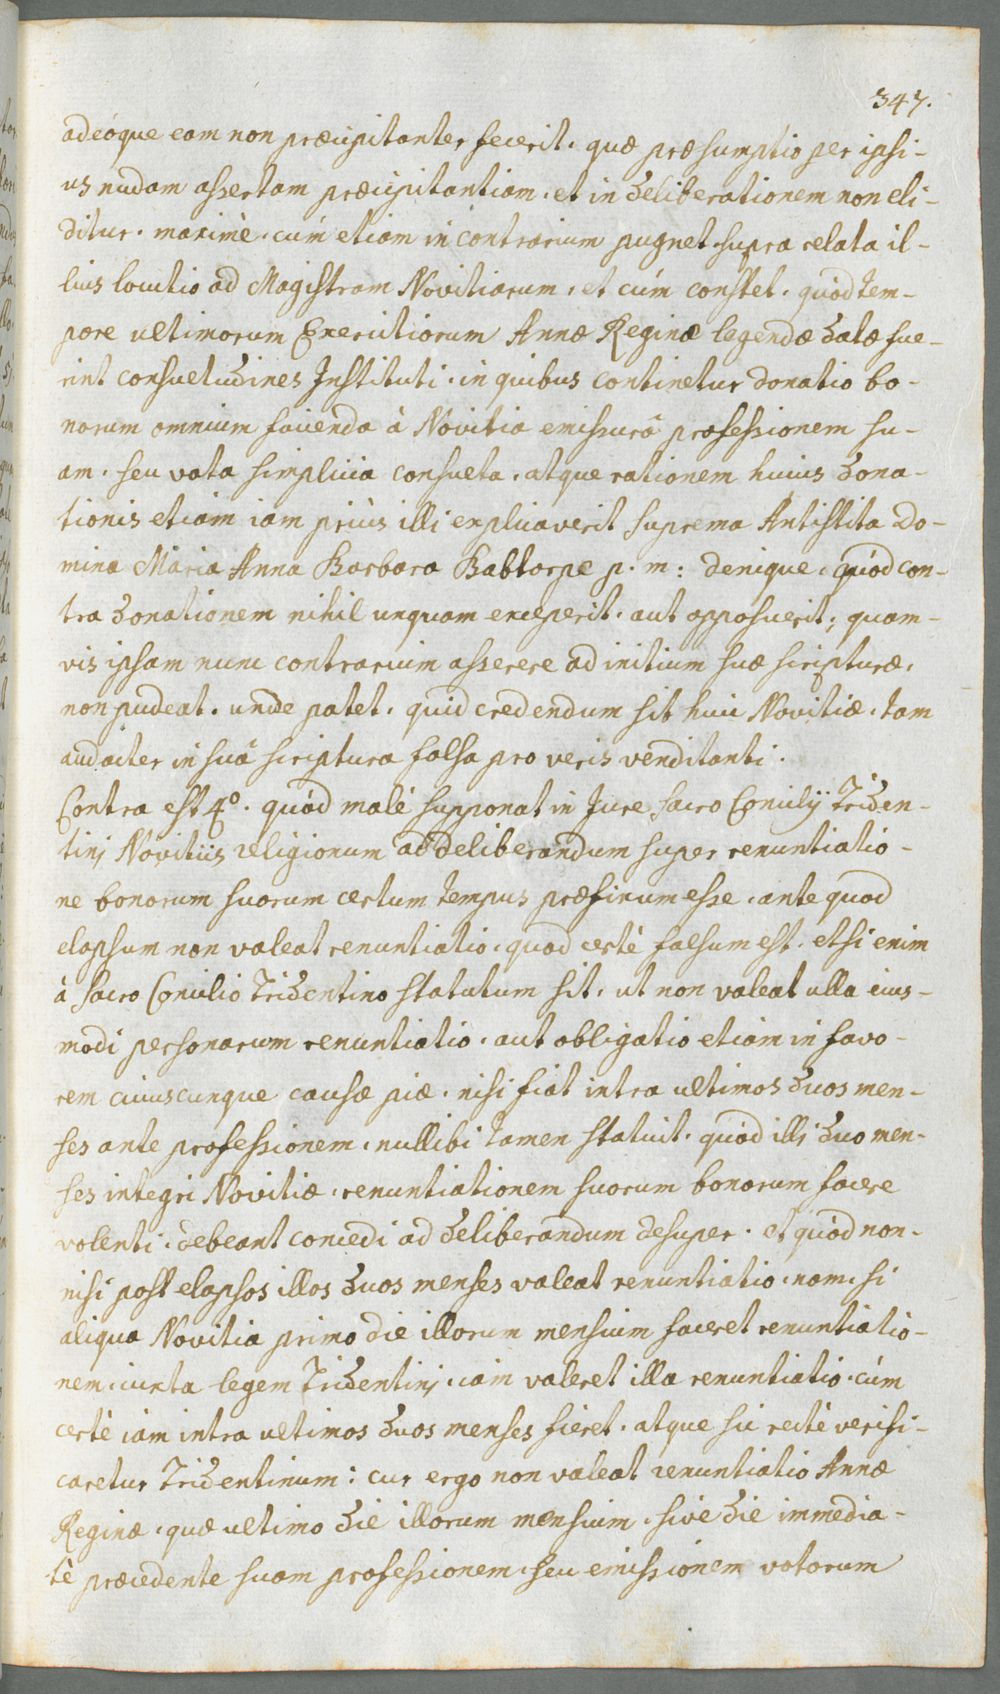 347.
adeóque eam non præcipitanter fecerit. quæ præsumptio per ipsi-
us nudam assertam præcipitantiam. et in deliberationem non eli-
ditur. maximè. cúm etiam in contrarium pugnet. supra relata il-
lius locutio ad Magistram Novitiarum. et cúm constet. quód tem-
pore ultimorum Exercitiorum Annæ Reginæ legendæ datæ fue-
rint consuetudines Instituti. in quibus continetur donatio bo-
norum omnium facienda à Novitia emissurâ professionem su-
am. seu vota simplicia consueta. atque rationem huius dona-
tionis etiam iam priùs illi explicaverit suprema Antistita Do-
mina Maria Anna Barbara Babtorpe p. m: denique. quód con-
tra donationem nihil unquam exceperit. aut opposuerit; quam-
vis ipsam nunc contrarium asserere ad initium suæ scripturæ.
non pudeat. unde patet. quid credendum sit huic Novitiæ. tam
audacter in suâ scriptura falsa pro veris venditanti.
Contra est 4º. quód malè supponat in Jure Sacro Concilij Triden-
tini Novitiis religionum ad deliberandum super renuntiatio-
ne bonorum suorum certum tempus præfixum esse. ante quod
elapsum non valeat renuntiatio. quod certè falsum est. etsi enim
à Sacro Concilio Tridentino statutum sit. ut non valeat ulla eius-
modi personarum renuntiatio. aut obligatio etiam in favo-
rem cuiuscunque causæ piæ. nisi fiat intra ultimos duos men-
ses ante professionem. nullibi tamen statuit. quód illi duo men-
ses integri Novitiæ. renuntiationem suorum bonorum facere
volenti. debeant concedi ad deliberandum desuper. et quód non-
nisi post elapsos illos duos menses valeat renuntiatio. nam. si
aliqua Novitia primo die illorum mensium faceret renuntiatio-
nem. iuxta legem Tridentini. iam valeret illa renuntiatio. cúm
certè iam intra ultimos duos menses fieret. atque sic rectè verifi-
caretur Tridentinum: cur ergo non valeat renuntiatio Annæ
Reginæ. quæ ultimo die illorum mensium. sive die immedia-
tè præcedente suam professionem. seu emissionem votorum